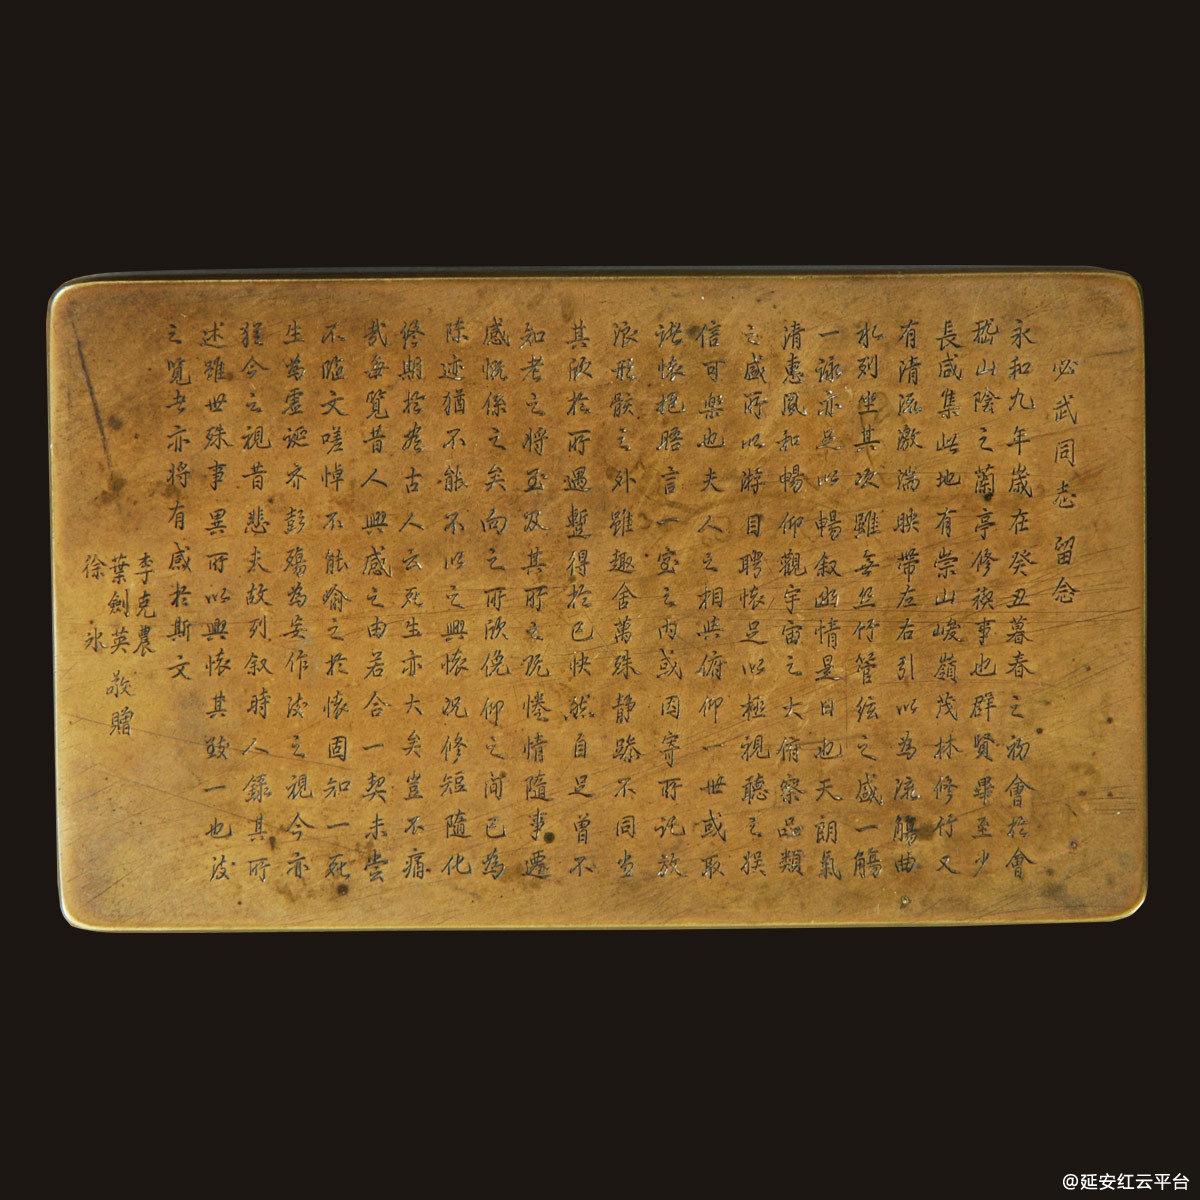 必武同志 留念
永和九年歲在癸丑暮春之初會於會
嵇山陰之蘭亭修禊事也群賢畢至少
長咸集此地有崇山峻嶺茂林修竹又
有清流激湍映帶左右引以為流觴曲
水列坐其次雖無絲竹管絃之盛一觴
一詠亦足以暢叙幽情是日也天朗氣
清惠風和暢仰觀宇宙之大俯察品類
之盛所以游目騁懷足以極視聽之娛
信可樂也夫人之相與俯仰一世或取
諸懷抱晤言一室之內或因寄所託放
浪形骸之外雖趣舍萬殊靜躁不同當
其欣於所遇蹔得於己快然自足曾不
知老之將至及其所之既惓情隨事遷
感慨係之矣向之所欣俛仰之間已為
陳迹猶不能不以之興懷況修短隨化
終期於盡古人云死生亦大矣豈不痛
哉每覽昔人興感之由若合一契未嘗
不臨文嗟悼不能喻之於懷固知一死
生為虛誕齊彭殤為妄作後之視今亦
猶今之視昔悲夫故列叙時人錄其所
述雖世殊事異所以興懷其致一也後
之覽者亦將有感於斯文
李克農
葉劍英 敬贈
徐冰
@延安红云平台